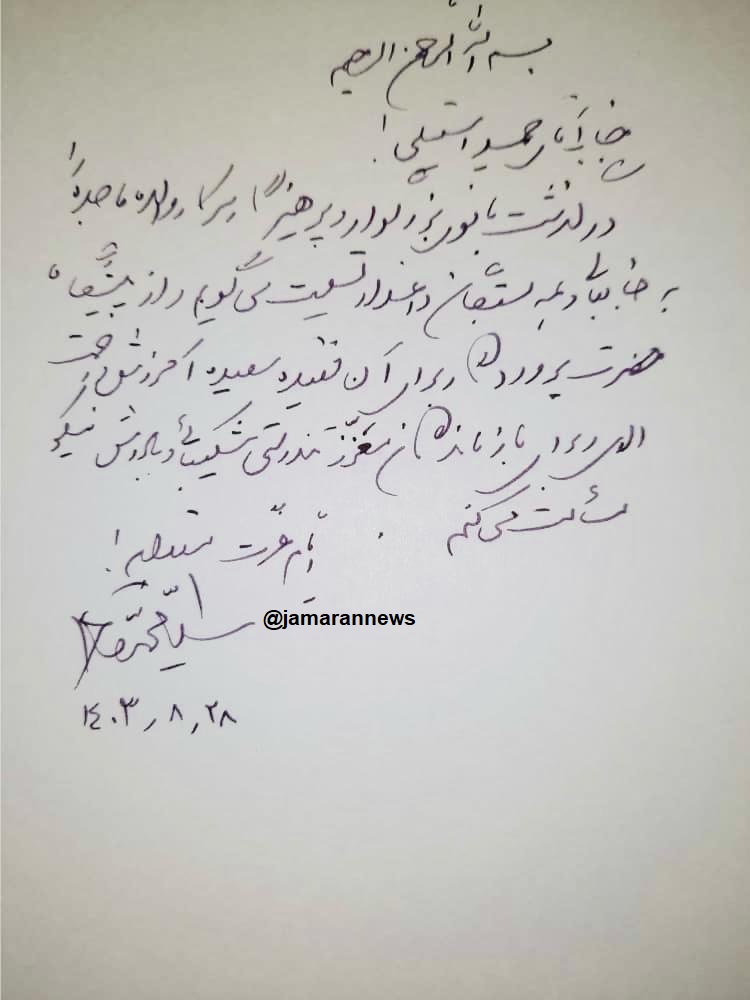 بسم الله الرحمن الرحیم
جناب آقای حمید استیلی!
درگذشت بانوی بزرگوار و پرهیزگار سرکار والده ماجده را
به جنابعالی و همه بستگان داغدار تسلیت می‌گویم و از پیشگاه
حضرت پروردگار برای آن فقیده سعیده آمرزش و رحمت
الهی و برای بازماندگان معزز تندرستی شکیبائی و پاداش نیکو
مسألت می‌کنم.
ایام عزت مستدام!
سید محمد خاتمی
@jamarannews
۱۴۰۳٫۸٫۲۸